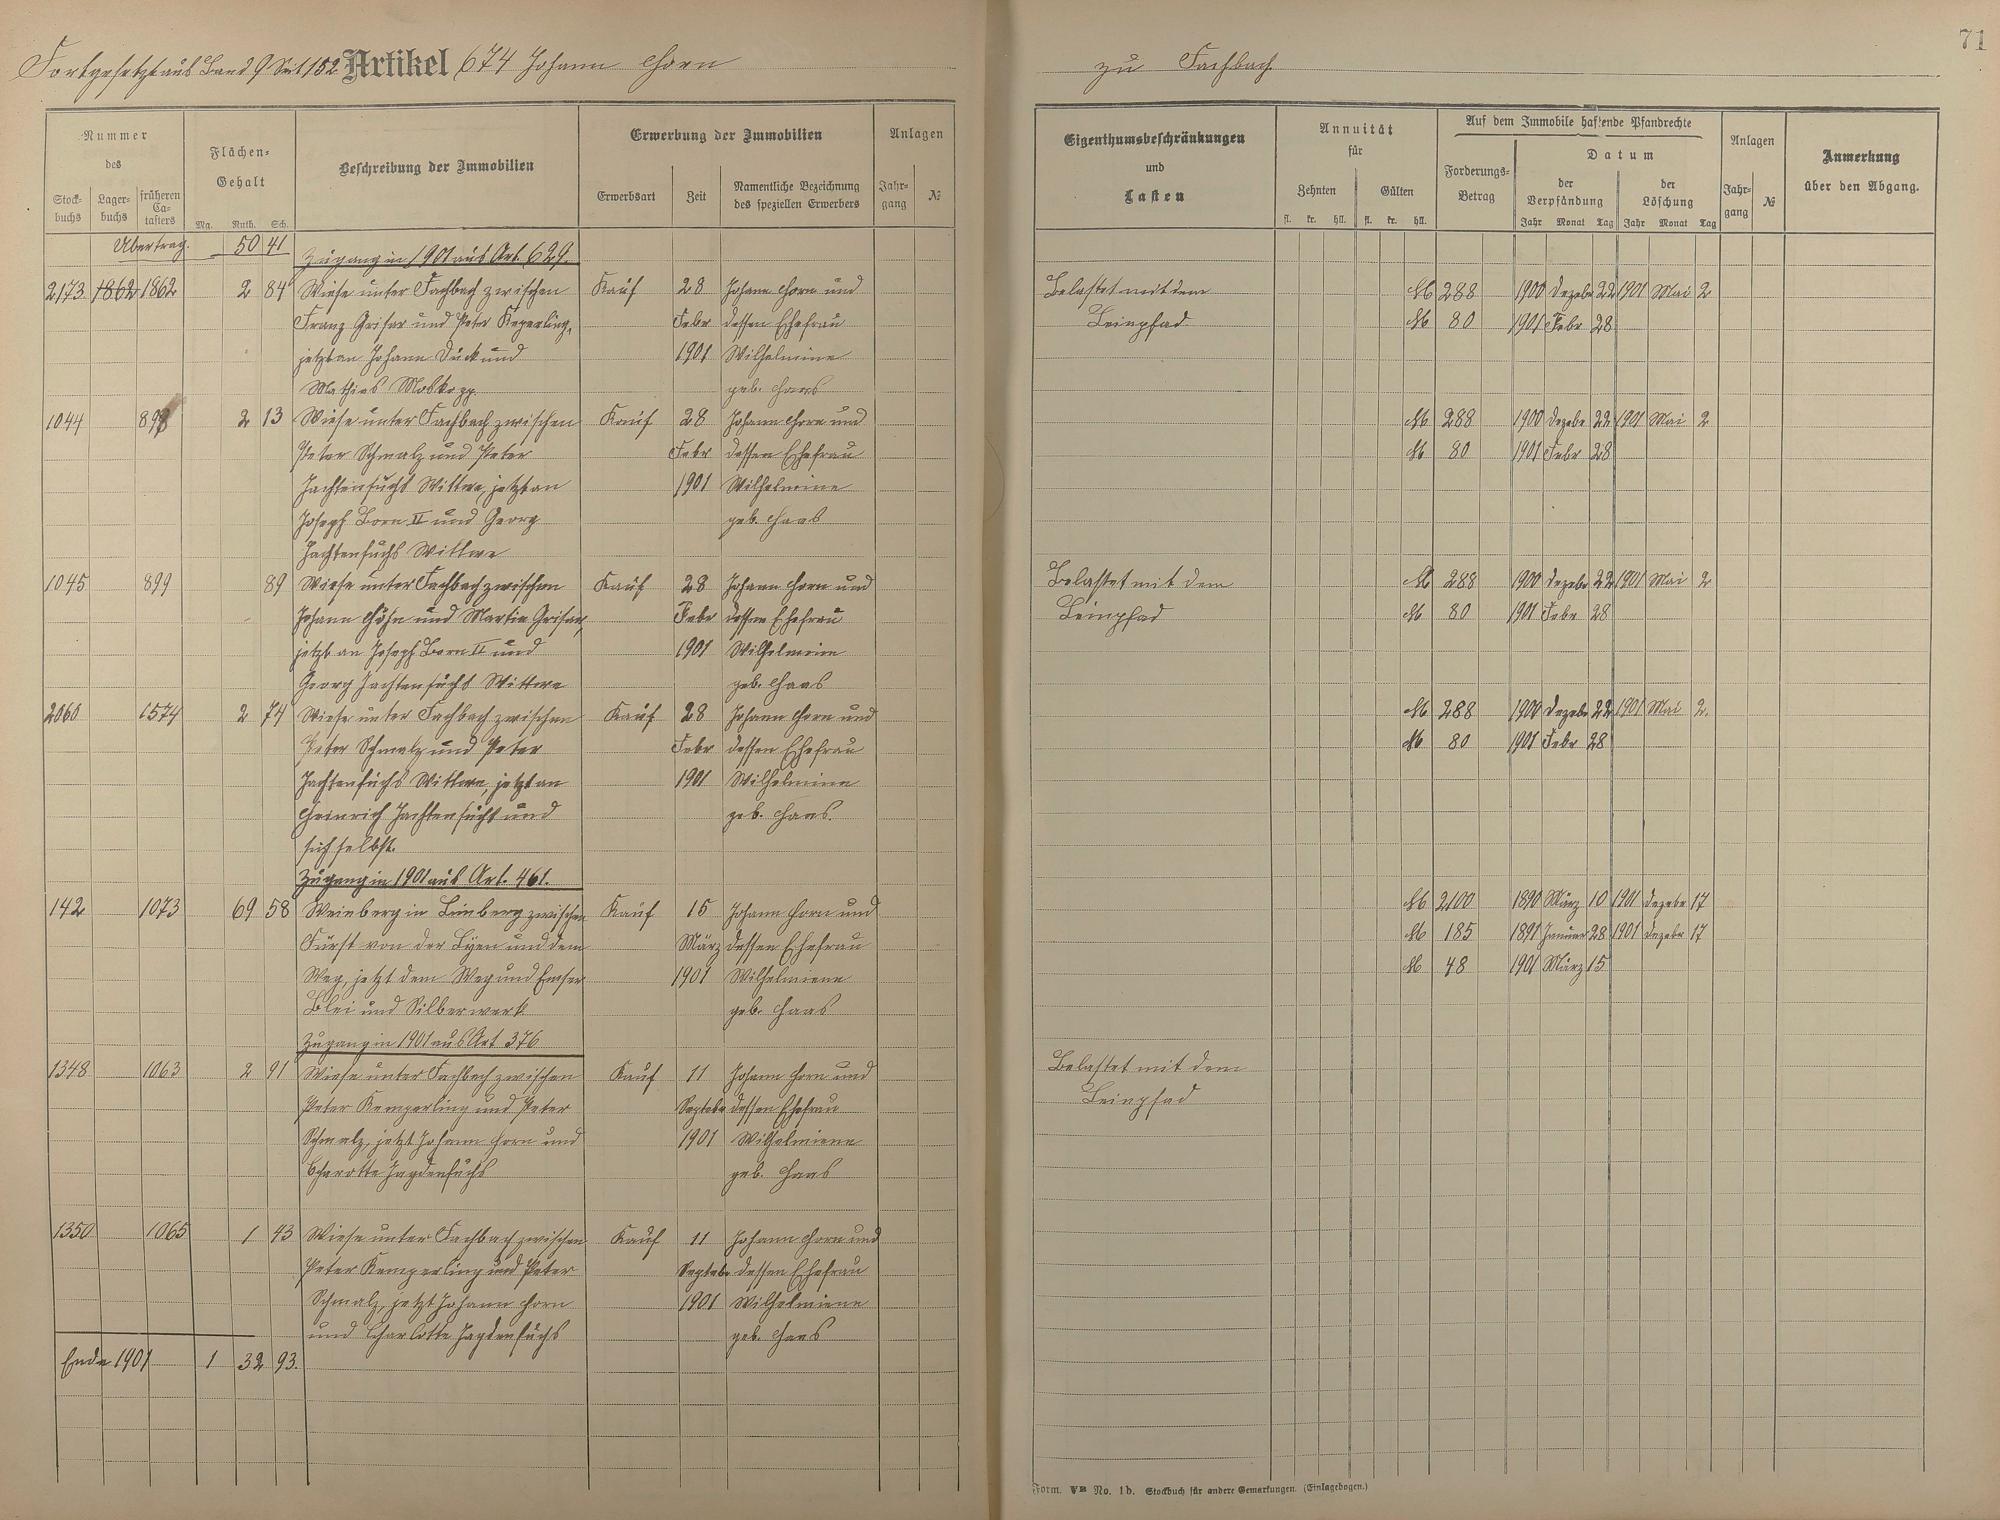 71
Fortgesetzt aus Band 9 Seit 152 Artikel 674 Johann Horn
zu Fachbach
Nummer
des
Stock-
buchs
Lager-
buchs
früheren
Ca-
tasters
Flächen-
Gehalt
Mg. Ruth. Sch.
Beschreibung der Immobilien
Erwerbung der Immobilien
Erwerbsart
Zeit
Namentliche Bezeichnung
des speziellen Erwerbers
Anlagen
Jahr-
gang
№
Eigenthumsbeschränkungen
und
Lasten
Annuität
für
Zehnten
Gülten
fl. kr. hll. fl. kr. hll.
Auf dem Immobile haftende Pfandrechte
Forderungs-
Betrag
Datum
der
Verpfändung
der
Löschung
Jahr Monat Tag Jahr Monat Tag
Anlagen
Jahr-
gang
№
Anmerkung
über den Abgang.
Übertrag. 50 41
Zugang in 1901 aus Art. 629.
2173 1862 1862 2 84 Wiese unter Fachbach zwischen Kauf 28 Johann Horn und
Franz Griesar und Peter Kemperling, Febr dessen Ehefrau
jetzt an Johann Dück und 1901 Wilhelmine
Mathias Moskopp geb. Haas
Belastet mit dem M 288 1900 Dezebr 22 1901 Mai 2
Leinpfad M 80 1901 Febr 28
1044 898 2 13 Wiese unter Fachbach zwischen Kauf 28 Johann Horn und
Peter Schmalz und Peter Febr dessen Ehefrau
Jachtenfuchs Wittwe, jetzt an 1901 Wilhelmine
Joseph Born II und Georg geb. Haas
Jachtenfuchs Wittwe
M 288 1900 Dezebr 22 1901 Mai 2
M 80 1901 Febr 28
1045 899 89 Wiese unter Fachbach zwischen Kauf 28 Johann Horn und
Johann Höhn und Martin Griesar, Febr dessen Ehefrau
jetzt an Joseph Born II und 1901 Wilhelmine
Georg Jachtenfuchs Wittwe geb. Haas
Belastet mit dem M 288 1900 Dezebr 22 1901 Mai 2
Leinpfad M 80 1901 Febr 28
2060 1574 2 74 Wiese unter Fachbach zwischen Kauf 28 Johann Horn und
Peter Schmalz und Peter Febr dessen Ehefrau
Jachtenfuchs Wittwe, jetzt an 1901 Wilhelmine
Heinrich Jachtenfuchs und geb. Haas.
sich selbst.
M 288 1900 Dezebr 22 1901 Mai 2.
M 80 1901 Febr 28
Zugang in 1901 aus Art. 461.
142 1073 69 58 Weinberg in Limberg zwischen Kauf 15 Johann Horn und
Fürst von der Lÿen und dem März dessen Ehefrau
Weg, jetzt dem Weg und Emser 1901 Wilhelmiene
Blei und Silberwerk geb. Haas
M 2100 1890 März 10 1901 Dezebr 17
M 185 1891 Januar 28 1901 Dezebr 17
M 48 1901 März 15
Zugang in 1901 aus Art 376
1348 1063 2 91 Wiese unter Fachbach zwischen Kauf 11 Johann Horn und
Peter Kemperling und Peter Septebr dessen Ehefrau
Schmalz, jetzt Johann Horn und 1901 Wilhelmiene
Charlotte Jagdenfuchs geb. Haas
Belastet mit dem
Leinpfad
1350 1065 1 43 Wiese unter Fachbach zwischen Kauf 11 Johann Horn und
Peter Kemperling und Peter Septebr dessen Ehefrau
Schmalz, jetzt Johann Horn 1901 Wilhelmiene
und Charlotte Jagdenfuchs geb. Haas
Ende 1901 1 32 93.
Form. VB No. 1b. Stockbuch für andere Gemarkungen. (Einlagebogen.)